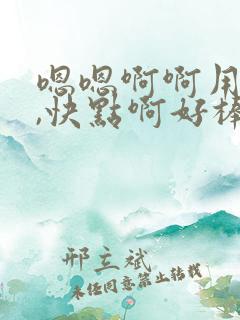 嗯嗯啊啊用
,快點啊好棒
邢立斌
未经同意禁止转载